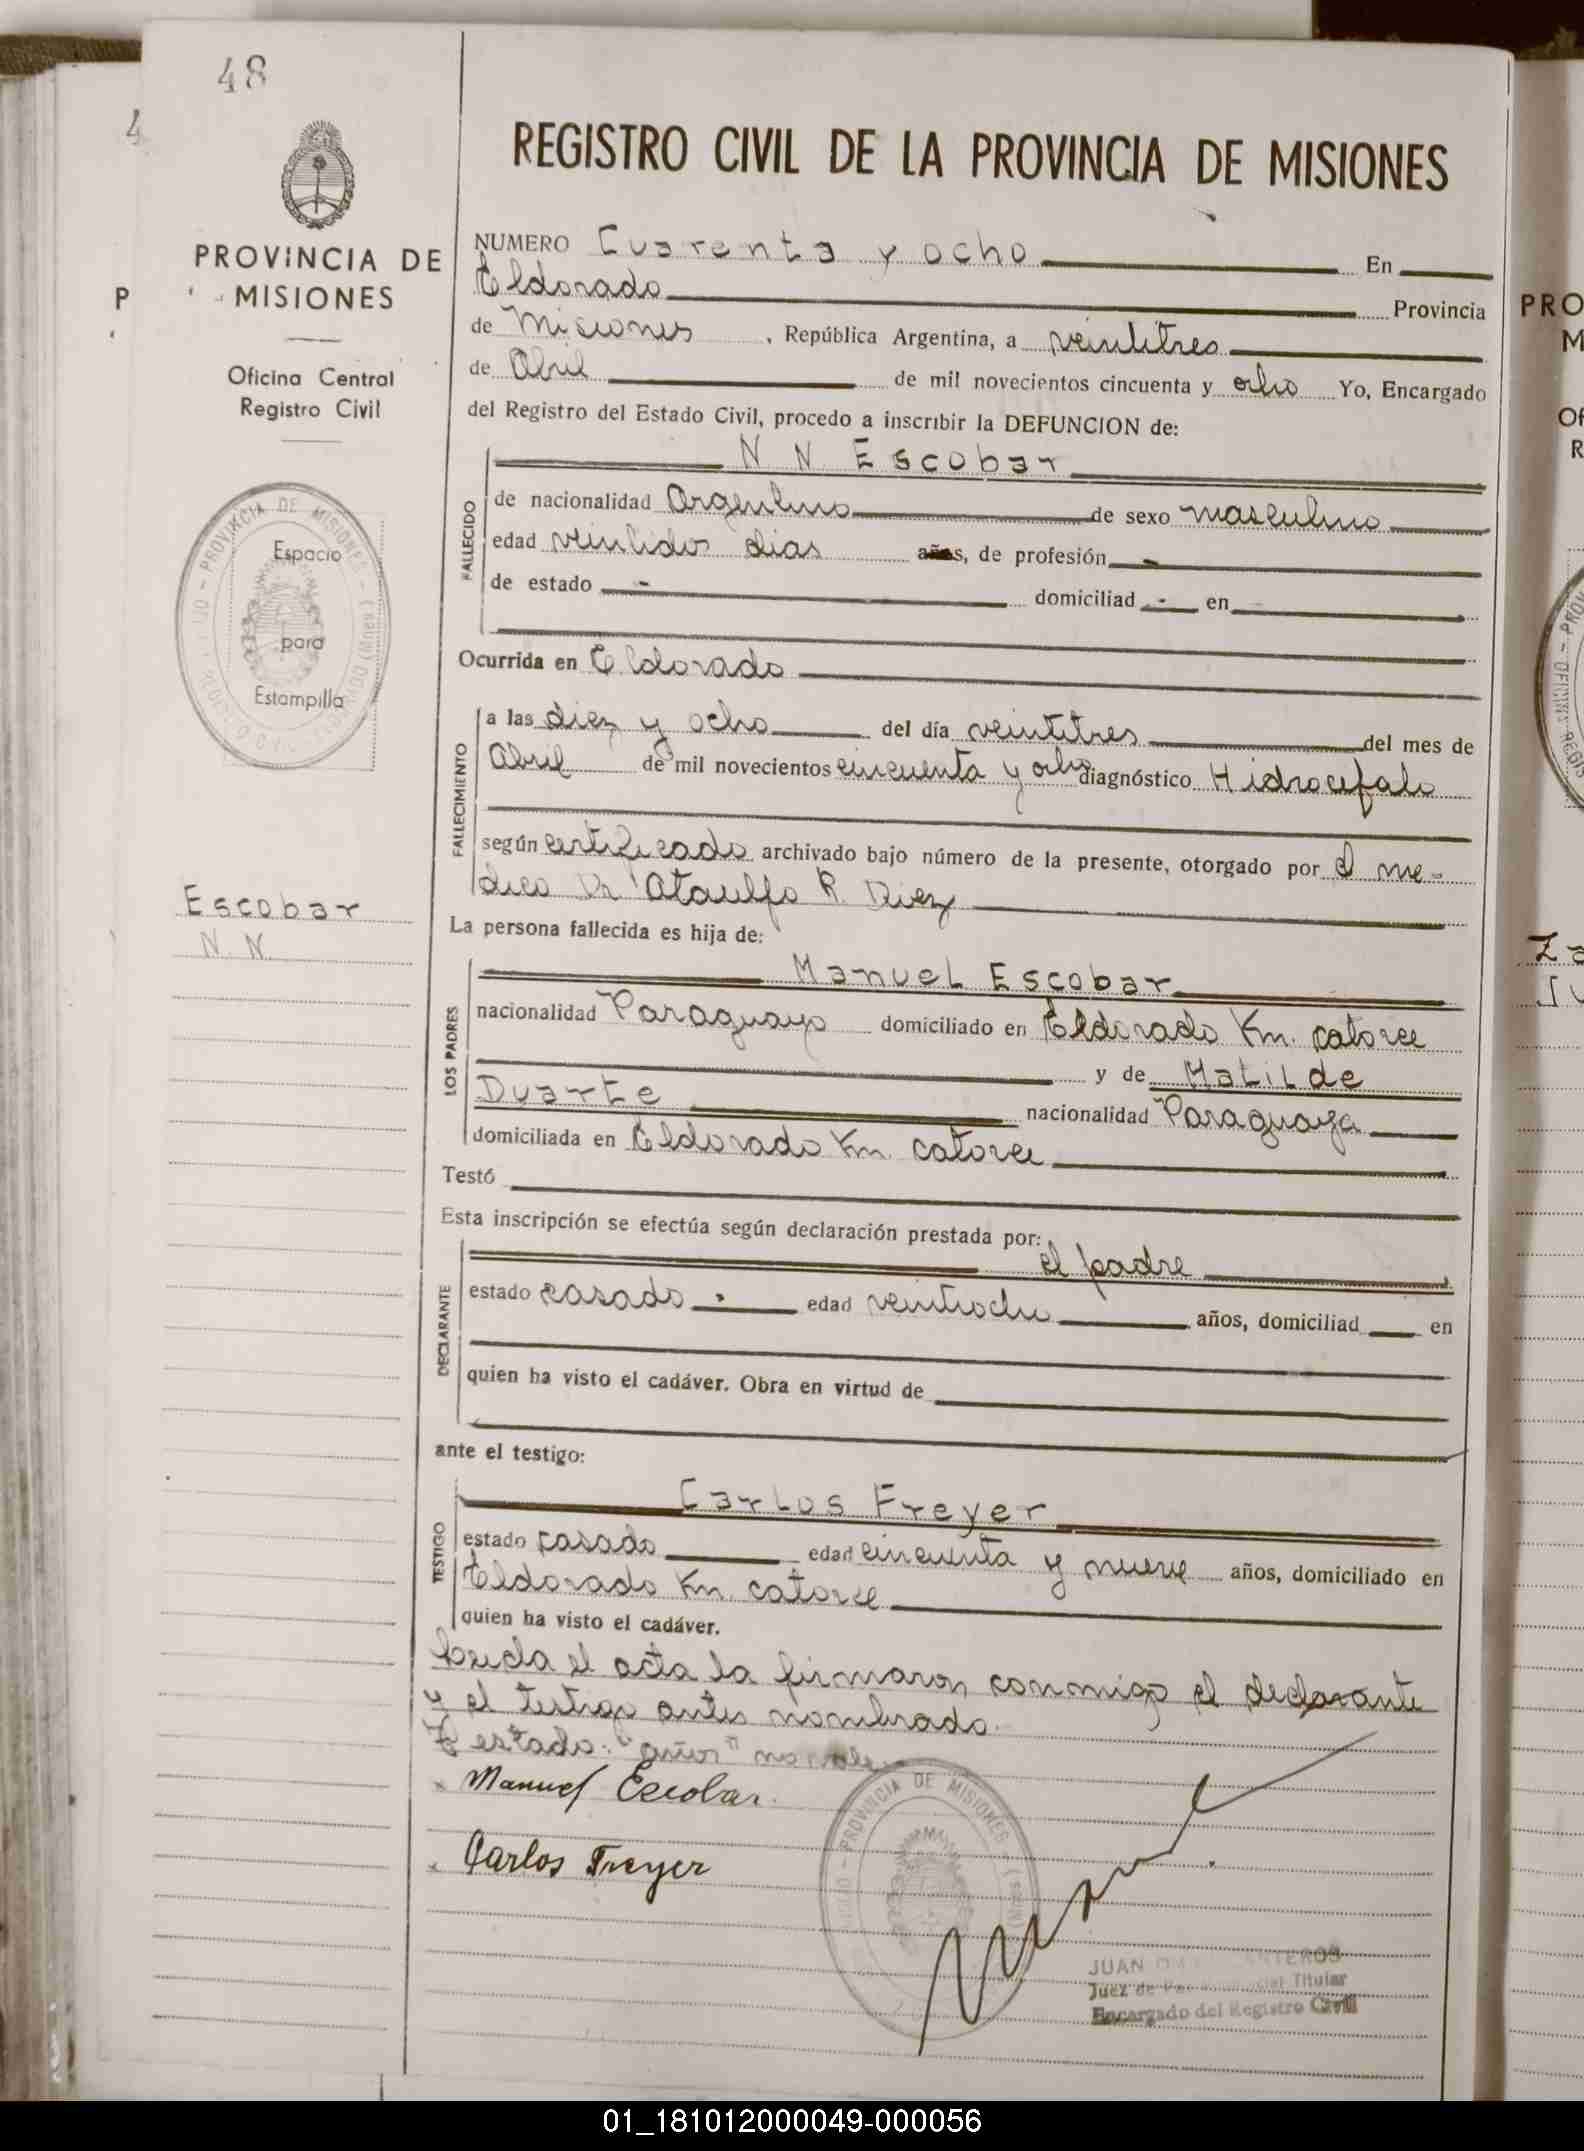 48
4
PROVINCIA DE
MISIONES
P
Oficina Central
Registro Civil
PROVINCIA DE MISIONES
Espacio
para
Estampilla
Escobar
N. N.
REGISTRO CIVIL DE LA PROVINCIA DE MISIONES
NUMERO Cuarenta y ocho En
Eldorado Provincia
de Misiones, República Argentina, a veintitres
de Abril de mil novecientos cincuenta y ocho Yo, Encargado
del Registro del Estado Civil, procedo a inscribir la DEFUNCION de:
N N Escobar
FALLECIDO
de nacionalidad Argentino de sexo masculino
edad veintidos dias años, de profesión -
de estado - domiciliad - en
Ocurrida en Eldorado
FALLECIMIENTO
a las diez y ocho del día veintitres del mes de
Abril de mil novecientos cincuenta y ocho diagnóstico Hidrocefalo
según certificado archivado bajo número de la presente, otorgado por el me-
dico Dr Ataulfo R. Diez
La persona fallecida es hija de:
LOS PADRES
Manuel Escobar
nacionalidad Paraguayo domiciliado en Eldorado Km. catorce
y de Matilde
Duarte nacionalidad Paraguaya
domiciliada en Eldorado Km. catorce
Testó
Esta inscripción se efectúa según declaración prestada por:
el padre
DECLARANTE
estado casado edad veintiocho años, domiciliad en
quien ha visto el cadáver. Obra en virtud de
ante el testigo:
Carlos Freyer
TESTIGO
estado casado edad cincuenta y nueve años, domiciliado en
Eldorado Km. catorce
quien ha visto el cadáver.
Leida el acta la firmaron conmigo el declarante
y el testigo antes nombrado.
Testado: "años" no vale
Manuel Escobar
Carlos Freyer
PROVINCIA DE MISIONES
JUAN
Juez de Titular
Encargado del Registro Civil
PRO
M
Of
R
01_181012000049-000056